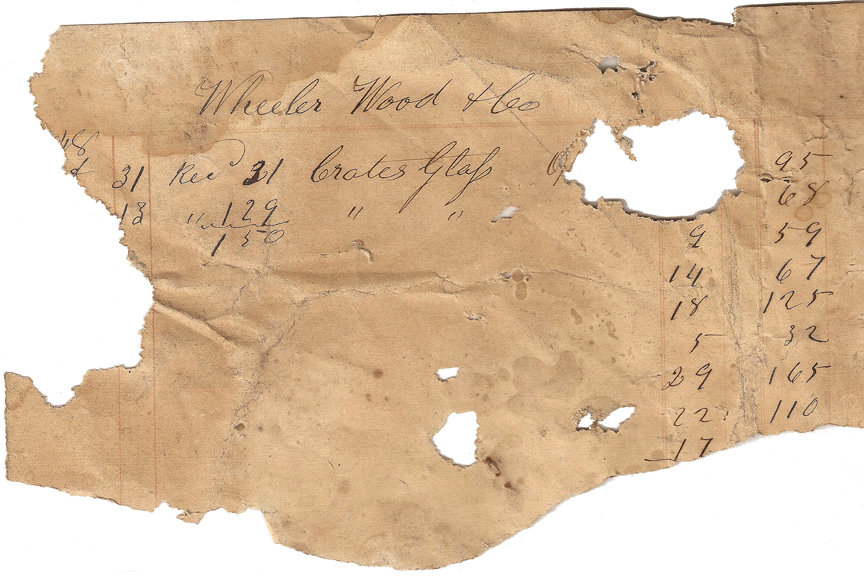 Wheeler Wood & Co
48
31 Rec'd 31 Crates Glass 95
68
13 " 129 " "
150 9 59
14 67
18 125
5 32
29 165
22 110
17